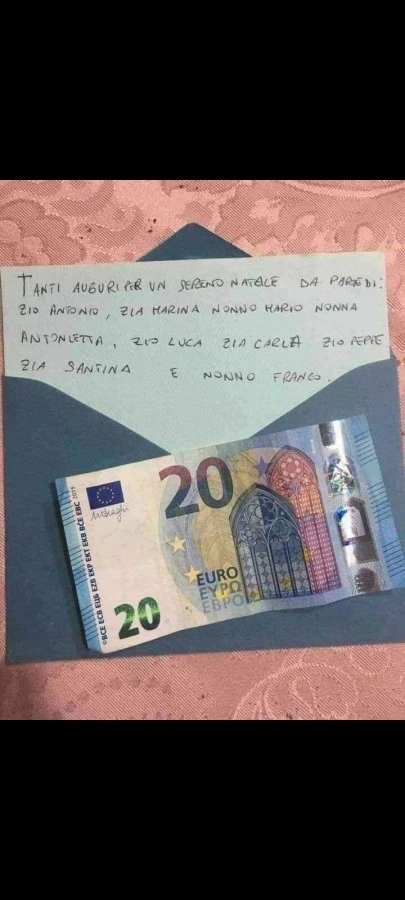 TANTI AUGURI PER UN SERENO NATALE DA PARTE DI:
ZIO ANTONIO, ZIA MARINA NONNO MARIO NONNA
ANTONLETTA, ZIO LUCA ZIA CARLA ZIO PEPPE
ZIA SANTINA E NONNO FRANCO.
20
EURO
ΕΥΡΩ
ЕВРО
20
©BCE ECB ЕЦБ EZB EKP EKT EKB BĊE EBC 2015